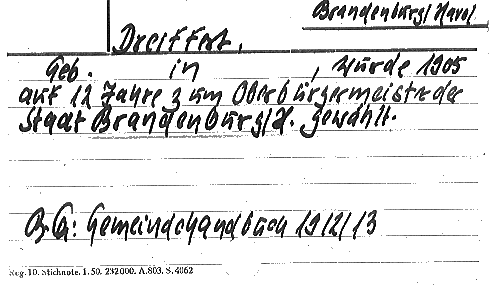 Brandenburg/Havel.
Dreifert,
Geb. in , wurde 1905
auf 12 Jahre zum Oberbürgermeister der
Stadt Brandenburg/H. gewählt.
Gemeindehandbuch 1912/13
Reg. 10. Stichnote. 1. 50. 232000. A.803. S. 4062